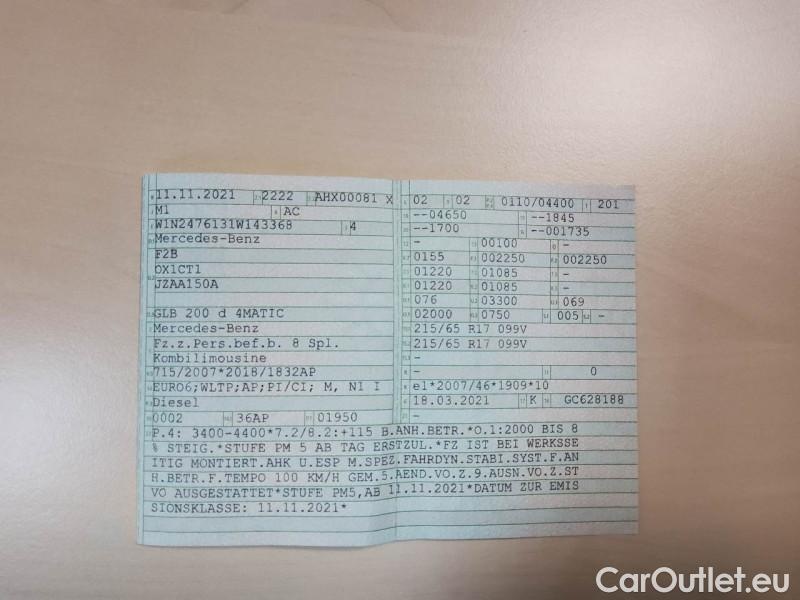 11.11.2021 2222 AHX00081 X
M1 AC
W1N2476131W143368 4
Mercedes-Benz
F2B
OX1CT1
JZAA150A
GLB 200 d 4MATIC
Mercedes-Benz
Fz.z.Pers.bef.b. 8 Spl.
Kombilimousine
715/2007*2018/1832AP
EURO6;WLTP;AP;PI/CI; M, N1 I
Diesel
0002 36AP 01950
02 02 0110/04400 201
--04650 --1845
--1700 --001735
- 00100 -
0155 002250 002250
01220 01085 -
01220 01085 -
076 03300 069
02000 0750 005 -
215/65 R17 099V
215/65 R17 099V
-
- 0
e1*2007/46*1909*10
18.03.2021 K GC628188
-
P.4: 3400-4400*7.2/8.2:+115 B.ANH.BETR.*O.1:2000 BIS 8
% STEIG.*STUFE PM 5 AB TAG ERSTZUL.*FZ IST BEI WERKSSE
ITIG MONTIERT.AHK U.ESP M.SPEZ.FAHRDYN.STABI.SYST.F.AN
H.BETR.F.TEMPO 100 KM/H GEM.5.AEND.VO.Z.9.AUSN.VO.Z.ST
VO AUSGESTATTET*STUFE PM5,AB 11.11.2021*DATUM ZUR EMIS
SIONSKLASSE: 11.11.2021*
CarOutlet.eu